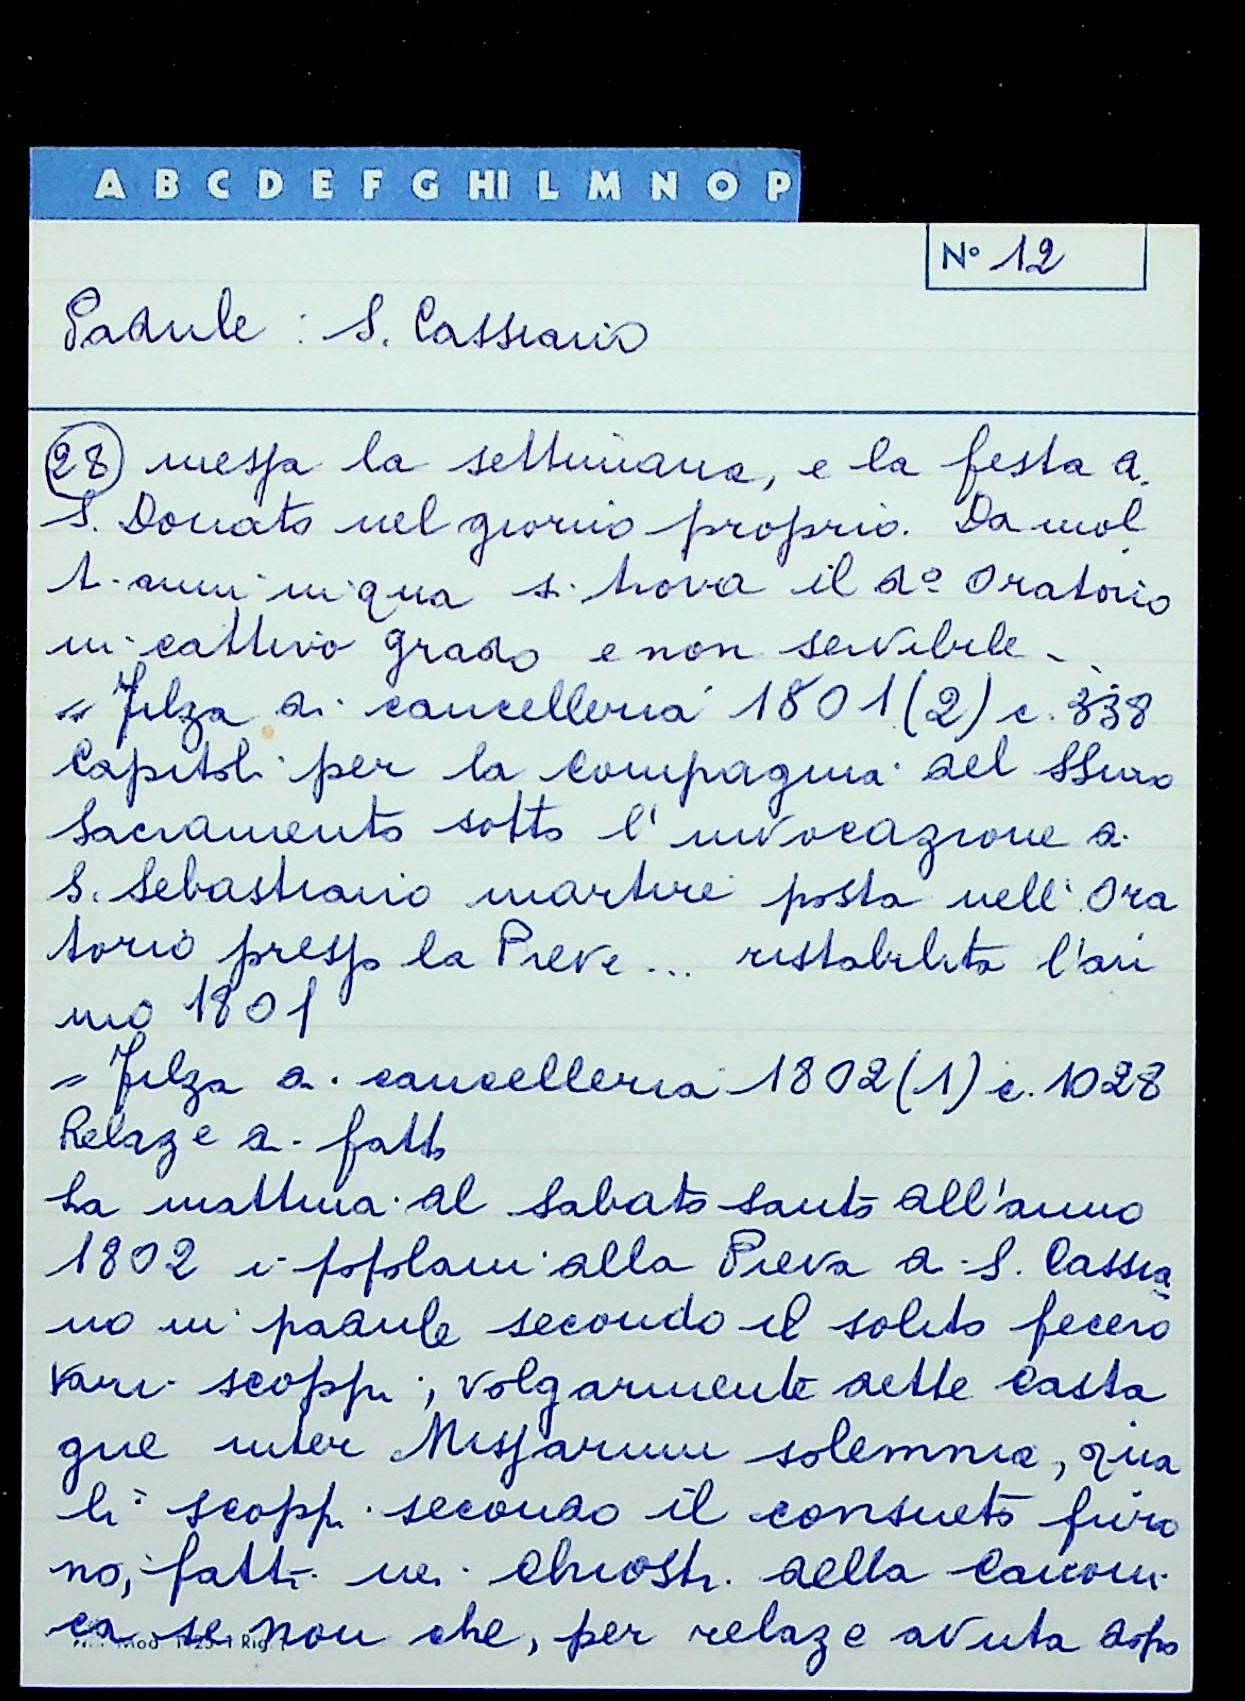 A B C D E F G HI L M N O P
N° 12
Padule : S. Cassiano
28 messa la settimana, e la festa di
S. Donato nel giorno proprio. Da mol
ti anni in qua si trova il do Oratorio
in cattivo grado e non servibile -
= Filza di cancelleria 1801 (2) c. 338
Capitoli per la Compagnia del SSimo
Sacramento sotto l'invocazione di
S. Sebastiano martire posta nell'Ora
torio presso la Pieve ... ristabilita l'an
no 1801
= Filza di cancelleria 1802 (1) c. 1028
Relaze di fatto
La mattina del Sabato santo dell'anno
1802 i popolani della Pieva di S. Cassia
no in padule secondo il solito fecero
vari scoppi, volgarmente dette casta
gne inter Missarum solemnia, qua
li scoppi secondo il consueto furo
no, fatti nei Chiostri della Canoni
ca se non che, per relaze avuta dopo